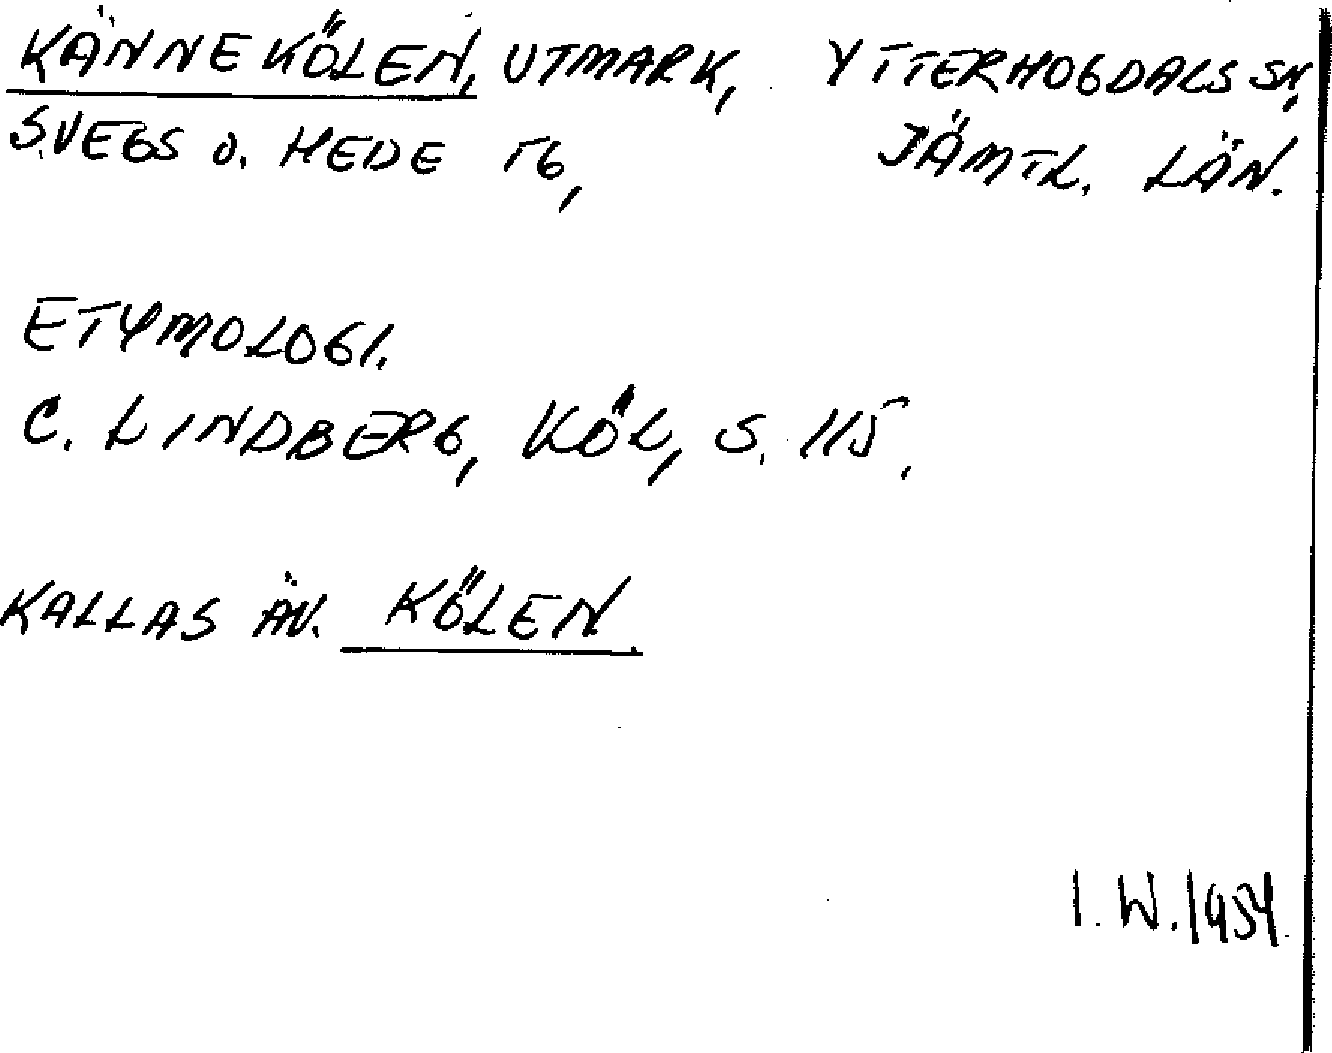 KÄNNEKÖLEN, UTMARK, YTTERHOGDALS SN,
SVEGS O. HEDE TG, JÄMTL. LÄN.
ETYMOLOGI.
C. LINDBERG, KÖL, S. 115.
KALLAS ÄV. KÖLEN.
I. W. 1954.